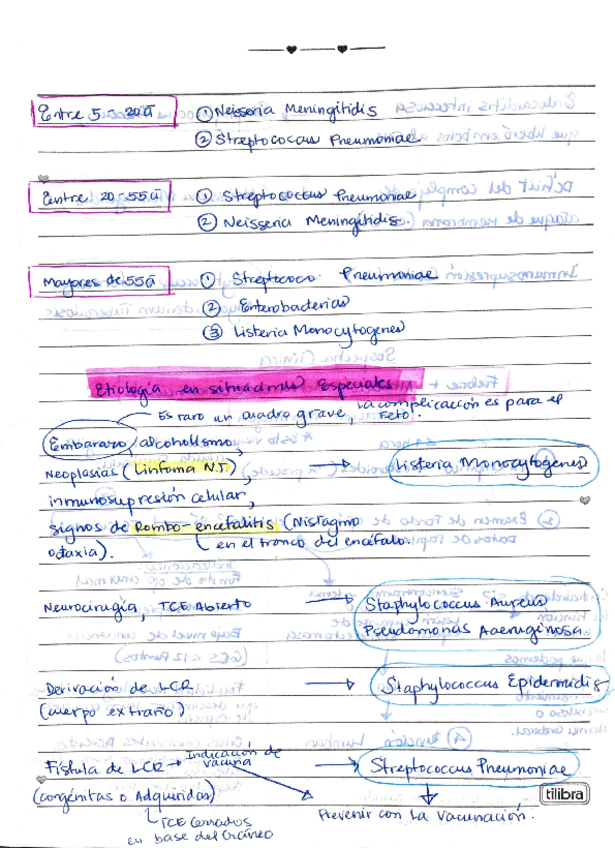 Entre 5 - 20ā ① Neisseria Meningitidis
② Streptococcus Pneumoniae
Entre 20-55ā ① Streptococcus Pneumoniae
② Neisseria Meningitidis.
Mayores de 55ā ① Streptococo Pneumoniae
② Enterobacterias
③ Listeria Monocytogenes
Etiología en situaciones Especiales
Es raro un cuadro grave, la complicación es para el Feto!
Embarazo, alcoholismo,
Neoplasias (Linfoma N.J), → Listeria Monocytogenes
inmunosupresión celular,
signos de Rombo-encefalitis (Nistagmo
o ataxia). en el tronco del encéfalo.
Neurocirugía, TCE Abierto → Staphylococcus Aureus
Pseudomonas Aaeruginosa.
Derivación de LCR → Staphylococcus Epidermidis
(cuerpo extraño)
Fístula de LCR → Indicación de vacuna → Streptococcus Pneumoniae
(congénitas o Adquiridas) Prevenir con la vacunación.
TCE Cerrados
en base del Cráneo
tilibra